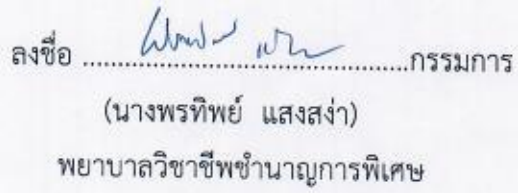 ลงชื่อ ........................................กรรมการ
(นางพรทิพย์ แสงสง่า)
พยาบาลวิชาชีพชำนาญการพิเศษ